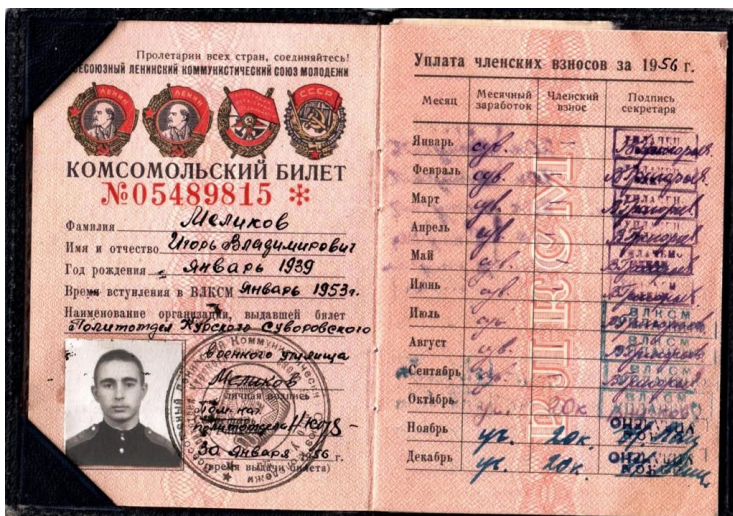 Пролетарии всех стран, соединяйтесь!
ВСЕСОЮЗНЫЙ ЛЕНИНСКИЙ КОММУНИСТИЧЕСКИЙ СОЮЗ МОЛОДЕЖИ
ЛЕНИН
ЛЕНИН
СССР
КОМСОМОЛЬСКИЙ БИЛЕТ
№05489815 *
Фамилия Меликов
Имя и отчество Игорь Владимирович
Год рождения январь 1939
Время вступления в ВЛКСМ Январь 1953г.
Наименование организации, выдавшей билет
Политотдел Курского Суворовского
военного училища
Меликов
личная подпись
политотдела
30 января 1956 г.
(время выдачи билета)
Уплата членских взносов за 1956 г.
Месяц Месячный заработок Членский взнос Подпись секретаря
Январь сув.
Февраль сув.
Март сув.
Апрель сув.
Май сув.
Июнь сув.
Июль сув. ВЛКСМ
Август сув. ВЛКСМ
Сентябрь сув. ВЛКСМ
Октябрь 20к. ВЛКСМ
Ноябрь уч. 20к.
Декабрь уч. 20к.
ВЛКСМ